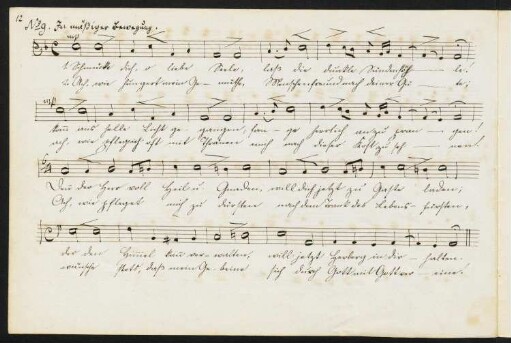 12
No 9. In mäßiger Bewegung.
mp
1. Schmücke dich, o liebe Seele, laß die dunkle Sündenhöh – le!
2. Ach, wie hungert mein Ge – müthe, Menschenfreund nach deiner Gü – te;
mp
kom ans helle Licht ge – gangen, fan – ge herrlich an zu pran – gen!
ach, wie pfleg ich oft mit Thränen mich nach dieser Kost zu seh – nen!
Den der Herr voll Heil u. Gnaden, will dich jetzt zu Gaste laden,
Ach, wie pfleget mich zu dürsten nach dem Trank des Lebens – fürsten,
der den Himel kan ver – walten, will jetzt Herberg in dir – halten.
wünsche stets, daß mein Ge – beine sich durch Gott mit Gott ver – eine!